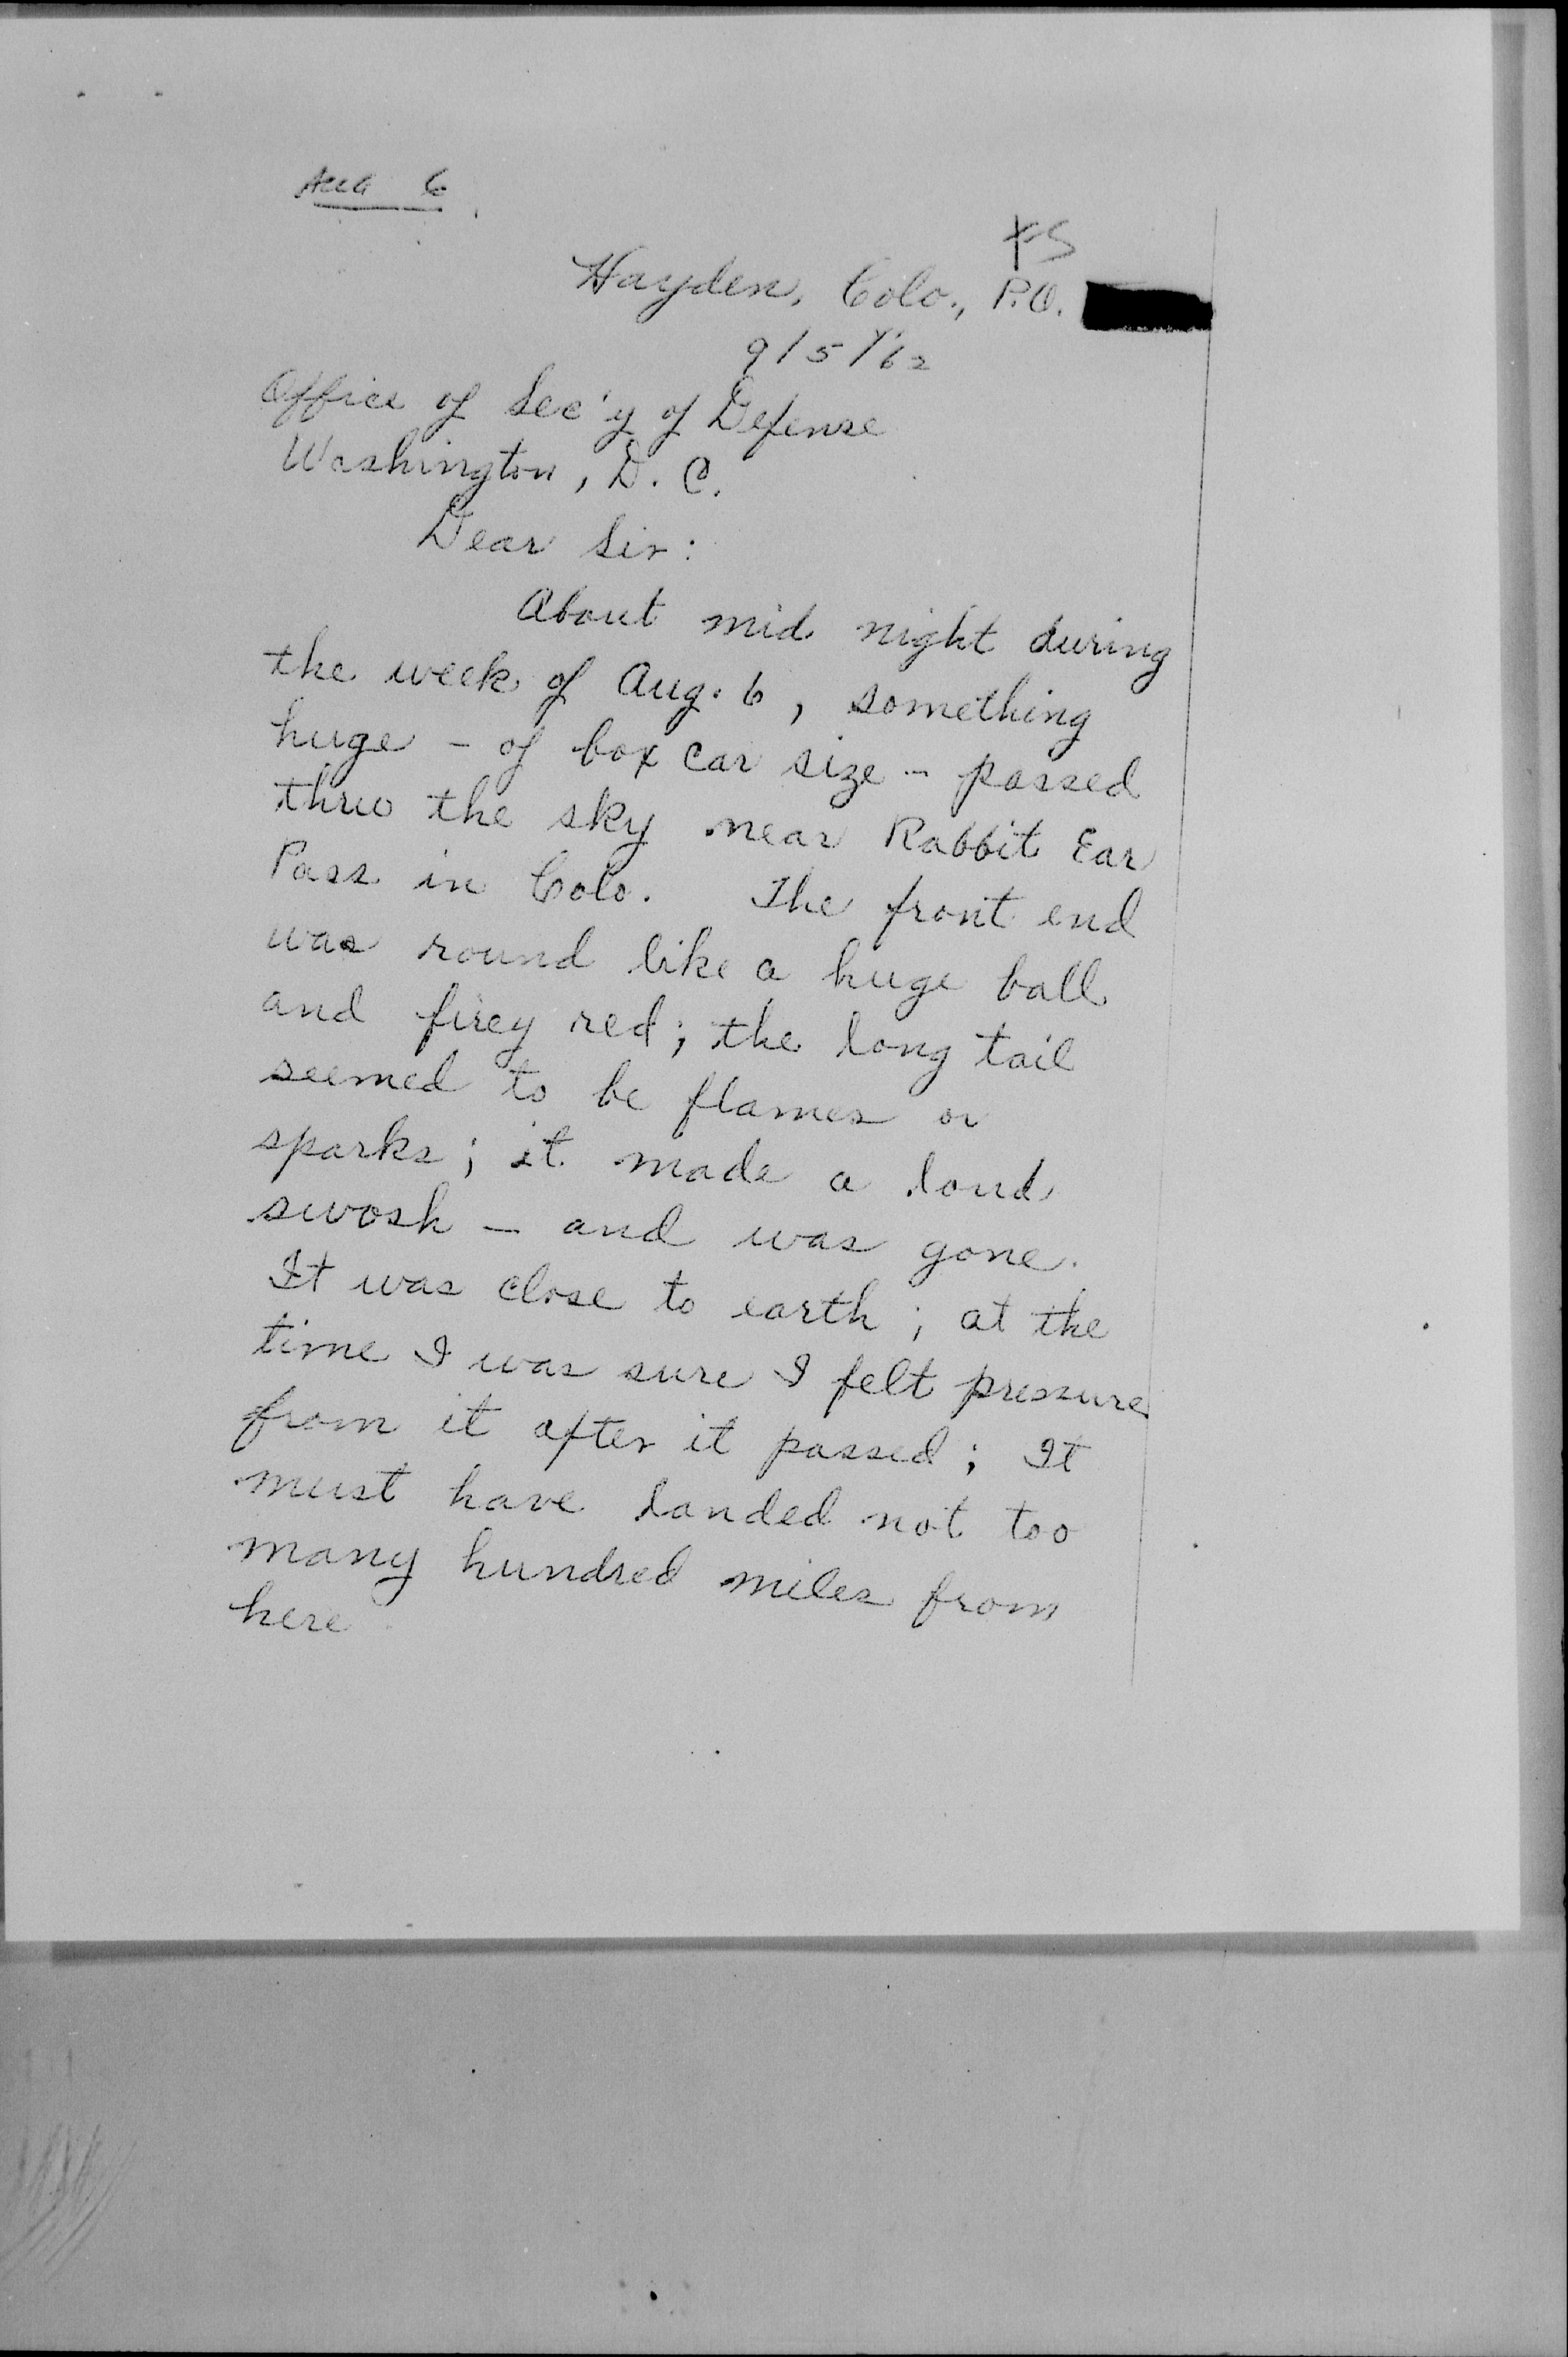 Aug 6
Hayden, Colo., P.O.
9/5/'62
Office of Sec'y of Defense
Washington, D. C.
Dear Sir:
About mid night during
the week of Aug. 6, something
huge - of box car size - passed
thru the sky near Rabbit Ear
Pass in Colo. The front end
was round like a huge ball
and firey red; the long tail
seemed to be flames or
sparks; it made a loud
swosh - and was gone.
It was close to earth; at the
time I was sure I felt pressure
from it after it passed; It
must have landed not too
many hundred miles from
here